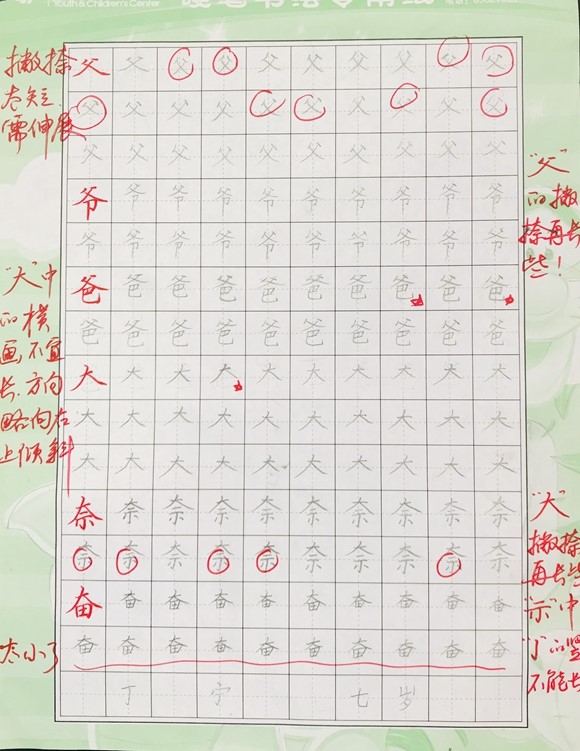 Youth & Children's Center
硬笔书法专用纸
撇捺
太短,
需伸展
父父父父父父父父父父
父父父父父父父父父父
父父父父父父父父父父
爷爷爷爷爷爷爷爷爷爷
爷爷爷爷爷爷爷爷爷爷
爸爸爸爸爸爸爸爸爸爸
爸爸爸爸爸爸爸爸爸爸
大大大大大大大大大大
大大大大大大大大大大
大大大大大大大大大大
奈奈奈奈奈奈奈奈奈奈
奈奈奈奈奈奈奈奈奈奈
奋奋奋奋奋奋奋奋奋奋
奋奋奋奋奋奋奋奋奋奋
丁 宁 七 岁
"大"中
的横
画不宜
长,方向
略向右
上倾斜
太小了
"父"
的撇
捺再长
些!
"大"
撇捺
再长些
"示"中
"亅"的竖
不能长